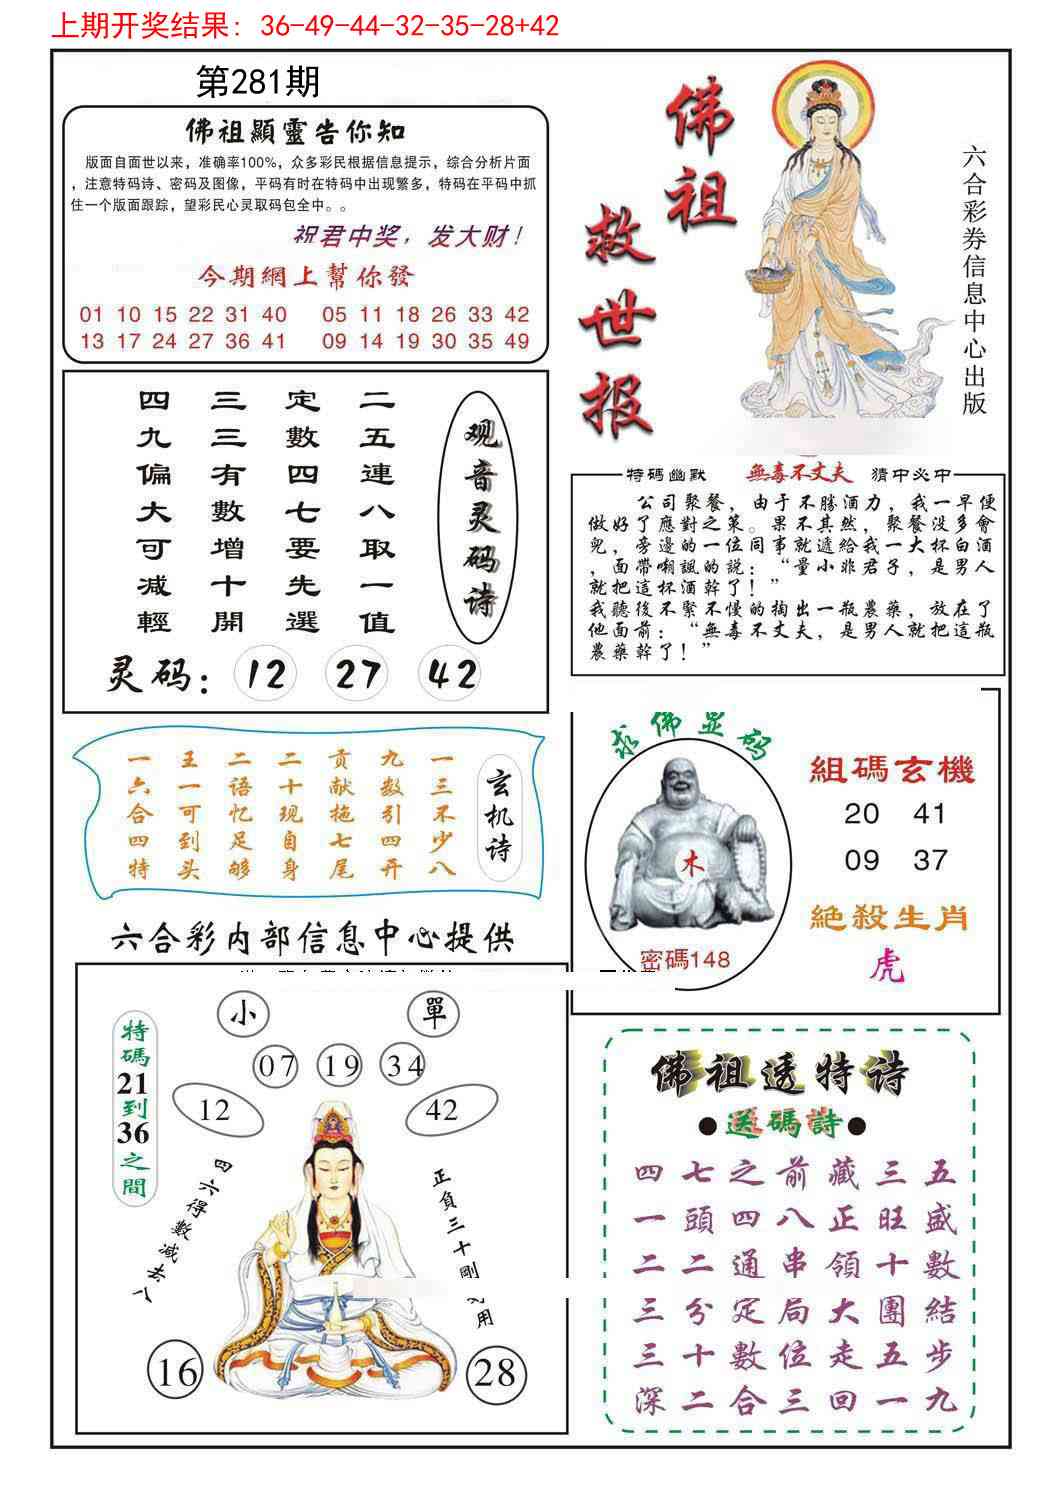 上期开奖结果：36-49-44-32-35-28+42
第281期
佛祖顯靈告你知
版面自面世以来，准确率100%，众多彩民根据信息提示，综合分析片面
，注意特码诗、密码及图像，平码有时在特码中出现繁多，特码在平码中抓
住一个版面跟踪，望彩民心灵取码包全中。。
祝君中奖，发大财！
今期網上幫你發
01 10 15 22 31 40 05 11 18 26 33 42
13 17 24 27 36 41 09 14 19 30 35 49
佛祖
救世报
六合彩券信息中心出版
四三定二
九三數五
偏有四連
大數七八
可增要取
减十先一
輕開選值
观音灵码诗
灵码：12 27 42
特碼幽默 無毒不丈夫 猜中必中
公司聚餐，由于不勝酒力，我一早便
做好了應對之策。果不其然，聚餐没多會
兒，旁邊的一位同事就遞給我一大杯白酒
，面帶嘲諷的説：“量小非君子，是男人
就把這杯酒幹了！”
我聽後不緊不慢的掏出一瓶農藥，放在了
他面前：“無毒不丈夫，是男人就把這瓶
農藥幹了！”
一王二二贡九一
六一语十献数三
合可忆现拖引不
四到足自七四少
特头够身尾开八
玄机诗
求佛显码
木
密碼148
組碼玄機
20 41
09 37
絶殺生肖
虎
六合彩内部信息中心提供
小 單
07 19 34
12 42
特碼21到36之間
四六得數减去八
正負三十剛 用
16 28
佛祖透特诗
●送碼詩●
四七之前藏三五
一頭四八正旺盛
二二通串領十數
三分定局大團結
三十數位走五步
深二合三回一九